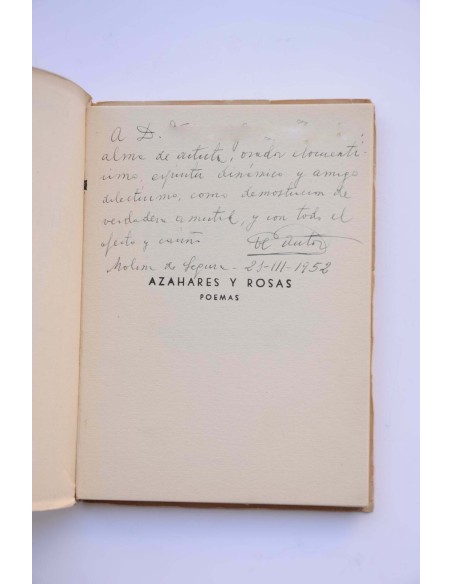 A D.
alma de artista, orador elocuentí-
simo, espíritu dinámico y amigo
dilectísimo, como demostración de
verdadera amistad, y con todo el
afecto y cariño El autor
Molina de Segura - 23-III-1952
AZAHARES Y ROSAS
POEMAS